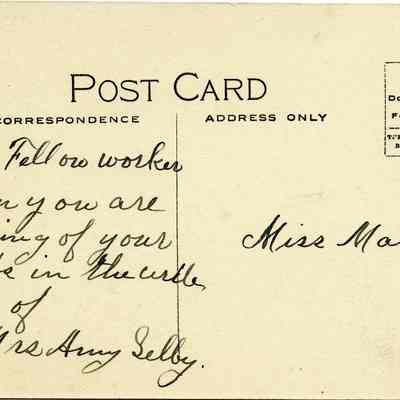 POST CARD
CORRESPONDENCE
ADDRESS ONLY
Fellow worker
n you are
ing of your
s in the circle
of
rs Amy Selby.
Miss Ma
Do
F